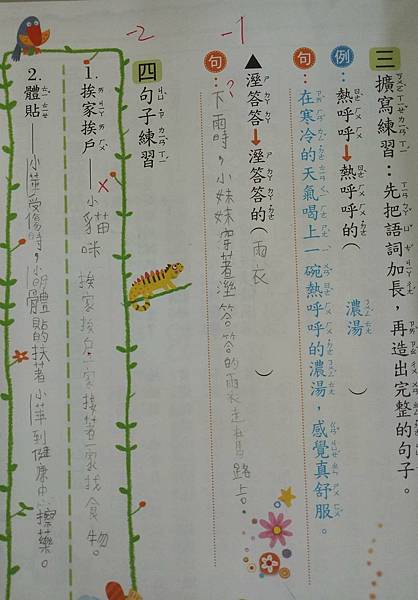 三 擴寫練習：先把語詞加長，再造出完整的句子。
例：熱呼呼→熱呼呼的(濃湯)
句：在寒冷的天氣喝上一碗熱呼呼的濃湯，感覺真舒服。
-1
▲溼答答→溼答答的(雨衣)
句：下雨時，小妹妹穿著溼答答的雨衣走在馬路上。
?
-2
四 句子練習
1. 挨家挨戶——小貓咪挨家挨戶一家接著一家找食物。
×
2. 體貼——小華受傷時，小明體貼的扶著小華到健康中心擦藥。